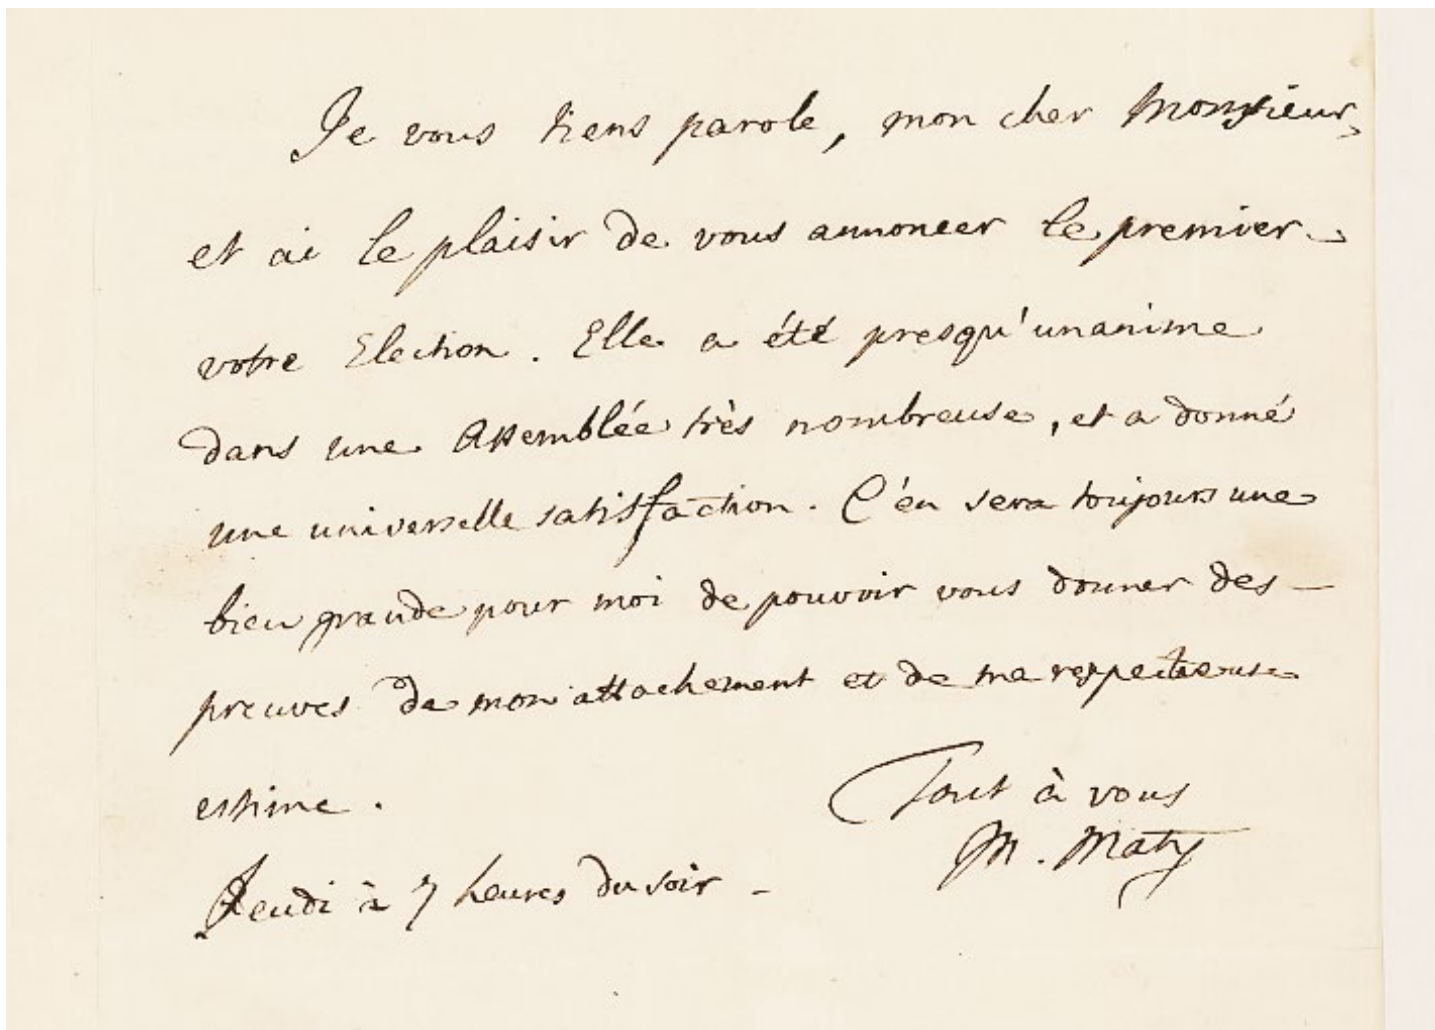 Je vous tiens parole, mon cher Monsieur,
et ai le plaisir de vous annoncer le premier
votre Election. Elle a été presqu'unanime
dans une Assemblée très nombreuse, et a donné
une universelle satisfaction. C'en sera toujours une
bien grande pour moi de pouvoir vous donner des
preuves de mon attachement et de ma respectueuse
estime.
Tout à vous
M. Maty
Jeudi à 7 heures du soir -